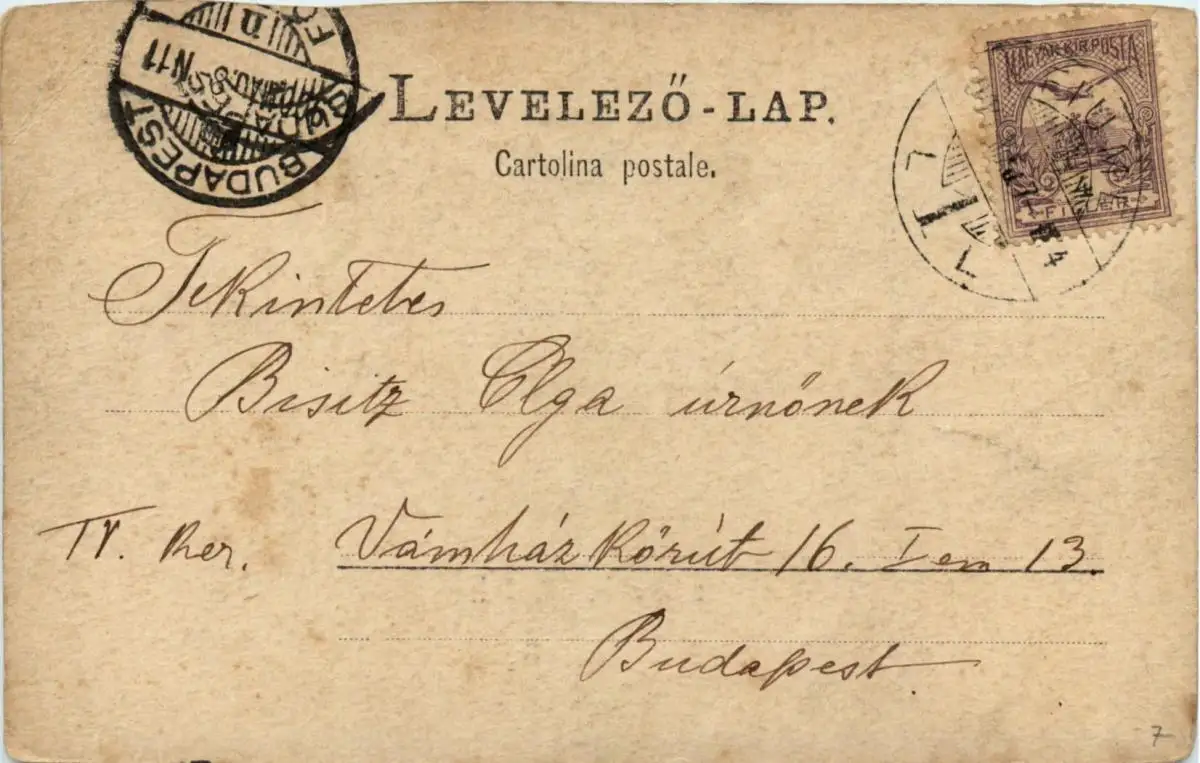 LEVELEZŐ-LAP.
Cartolina postale.
BUDAPEST
N11
MAGYAR KIR. POSTA
Tekintetes
Bisitz Olga úrnőnek
IV. Ker. Vámház Körút 16. I em 13.
Budapest
7